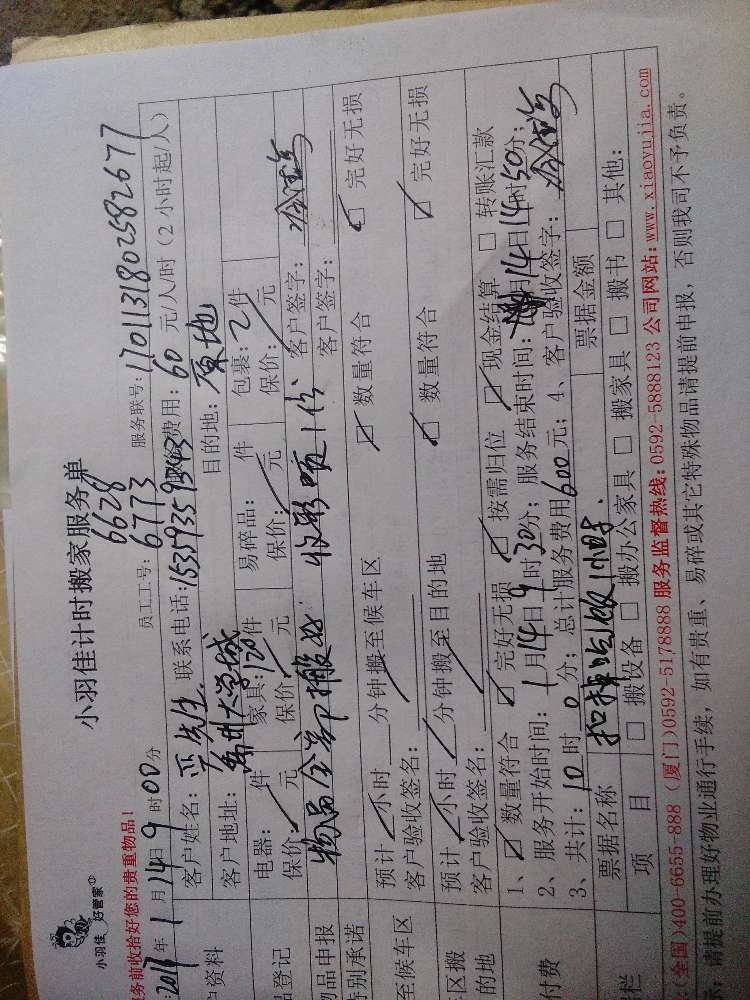 小羽佳 好管家
小羽佳计时搬家服务单
务前收拾好您的贵重物品！
员工工号： 6628 6773 服务联号：1701131802582677
2017年1月14日9时00分
客户姓名： 先生 联系电话： 费用：60元/人/时（2小时起/人）
户资料 客户地址： 州大学城 目的地：原地
电器： 件 家具：120件 易碎品： 件 包裹：2件
品登记 保价： 元 保价： 元 保价： 元 保价： 元
物品申报 物品全部搬 1份 客户签字：
特别承诺 客户签字：
预计 小时 分钟搬至候车区 ☑ 数量符合 ☑ 完好无损
至候车区 客户验收签名：
预计 小时 分钟搬至目的地 ☑ 数量符合 ☑ 完好无损
区搬 的地 客户验收签名：
1、☑ 数量符合 ☑ 完好无损 ☑ 按需归位 ☑ 现金结算 □ 转账汇款
2、服务开始时间：1月14日9时30分；服务结束时间： 月14日14时50分；
付费 3、共计：10时0分；总计服务费用600元；4、客户验收签字：
票据名称 扣掉吃饭1小时. 票据金额
栏 项 目 □ 搬设备 □ 搬办公家具 □ 搬家具 □ 搬书 □ 其他：
(全国)400-6655-888 (厦门)0592-5178888 服务监督热线：0592-5888123 公司网站：www.xiaoyujia.com
：请提前办理好物业通行手续，如有贵重、易碎或其它特殊物品请提前申报，否则我司不予负责。